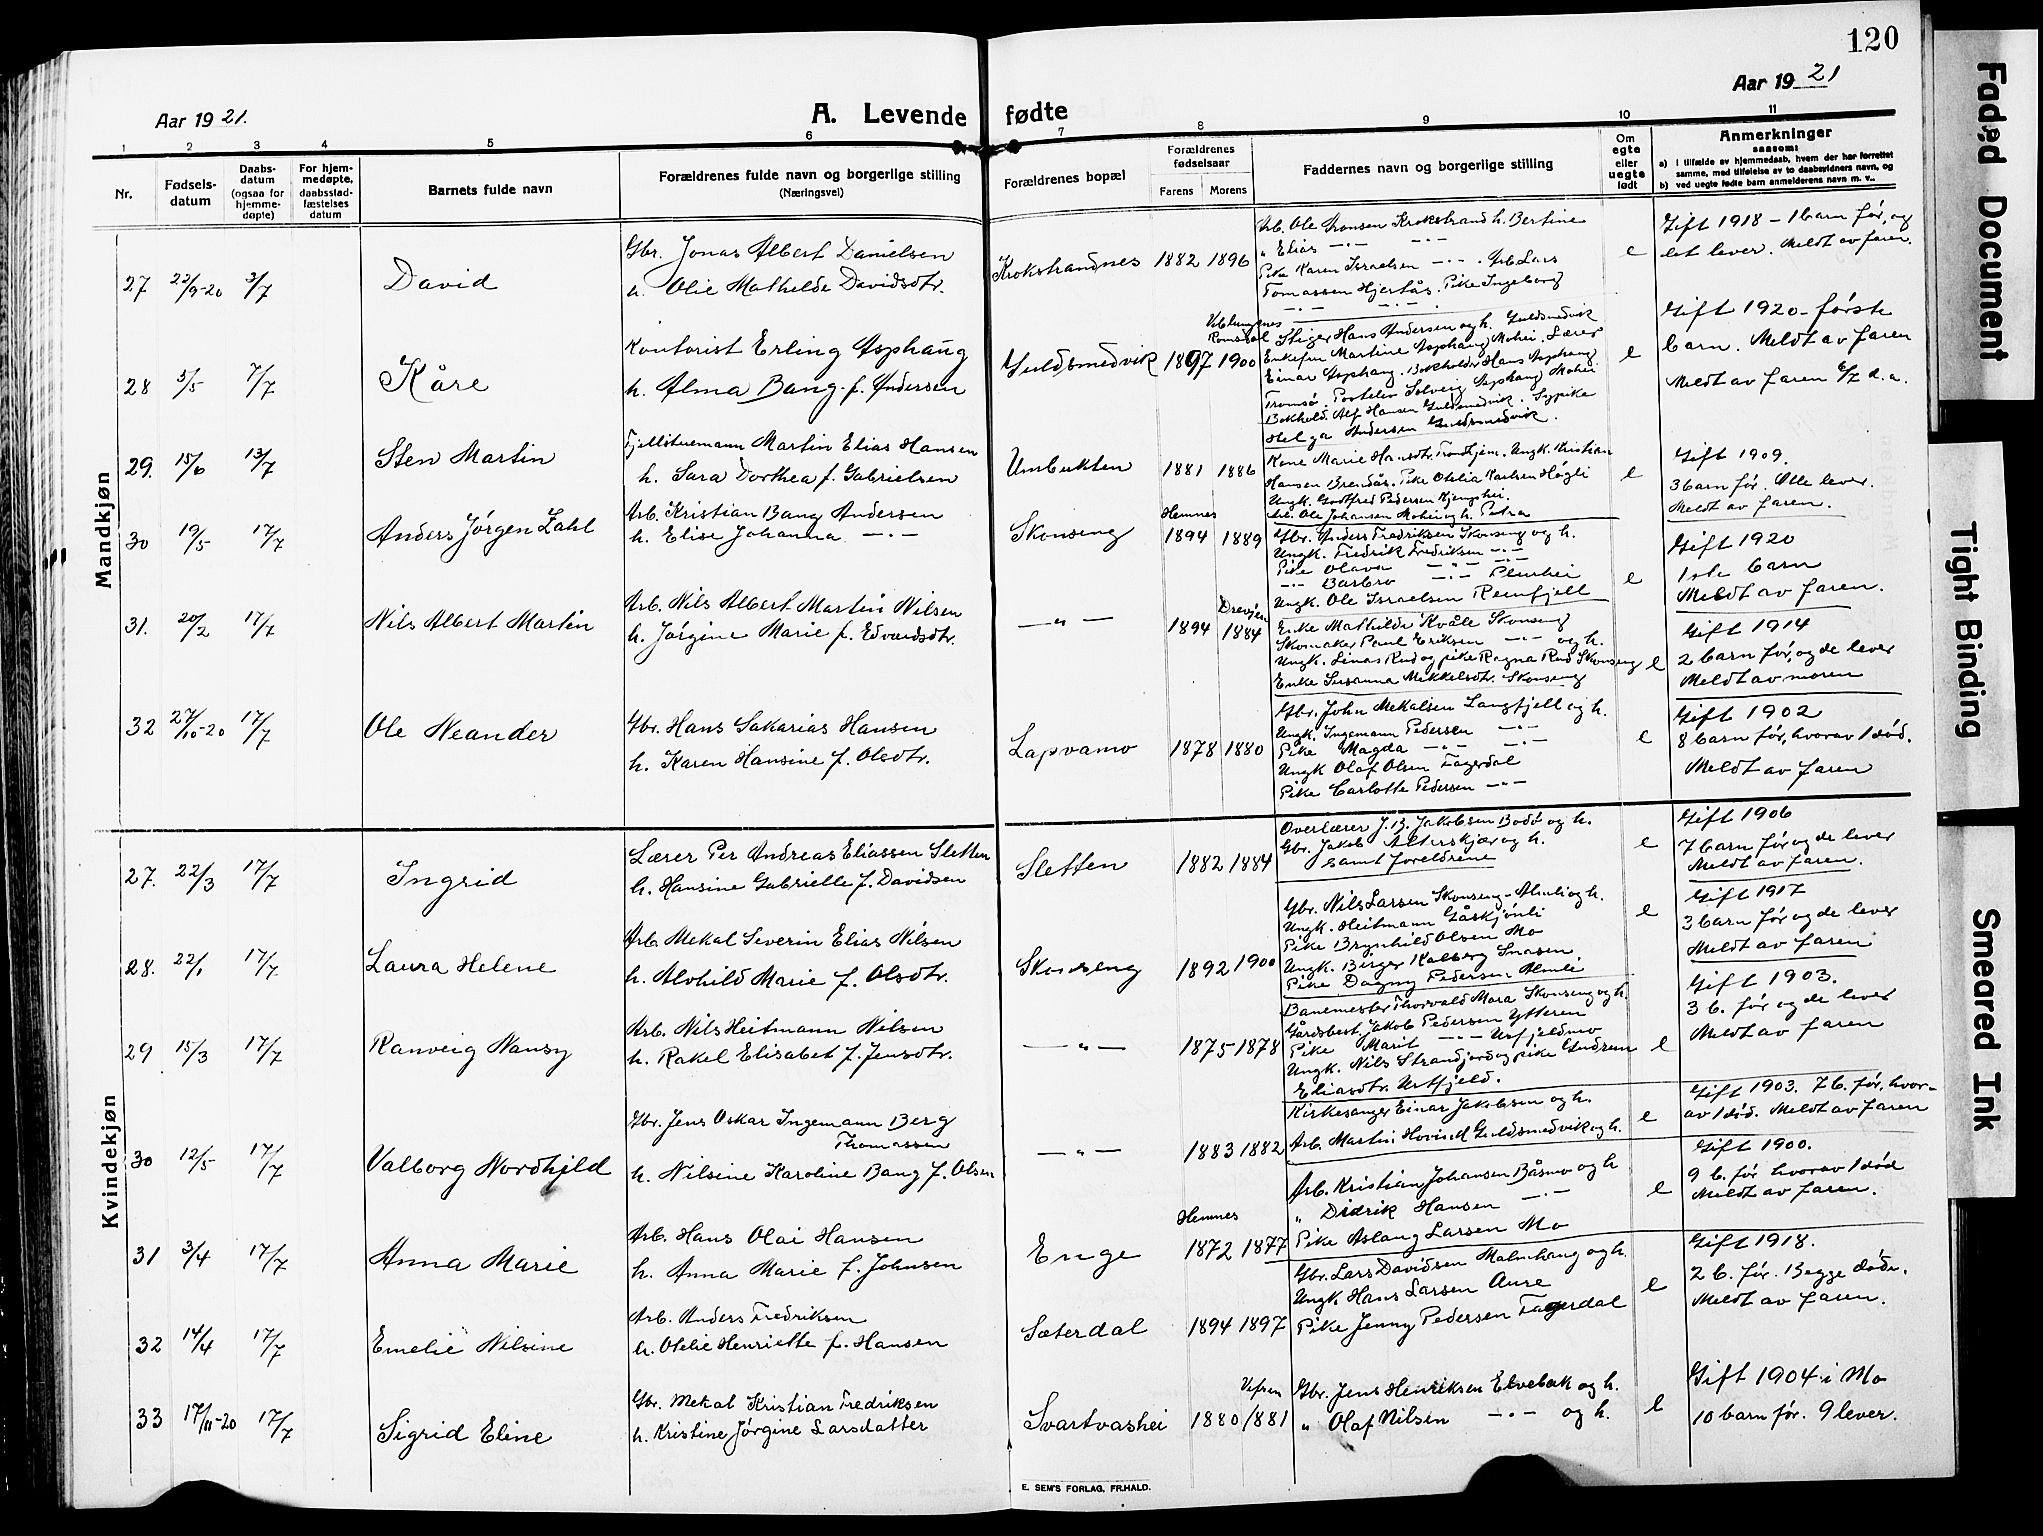 120
Aar 1921.
A. Levende fødte
Aar 1921
1 2 3 4 5 6 7 8 9 10 11
Nr.
Fødsels-
datum
Daabs-
datum
(ogsaa for
hjemme-
døpte)
For hjem-
medøpte,
daabsstad-
fæstelses
datum
Barnets fulde navn
Forældrenes fulde navn og borgerlige stilling
(Næringsvei)
Forældrenes bopæl
Forældrenes
fødselsaar
Farens Morens
Faddernes navn og borgerlige stilling
Om
egte
eller
uegte
født
Anmerkninger
saasom:
a) i tilfælde av hjemmedaab, hvem der har forrettet
samme, med tilføielse av to daabsvidners navn, og
b) ved uegte fødte barn anmelderens navn m. v..
Mandkjøn
27 22/9-20 3/7 David
Gbr. Jonas Albert Danielsen
h. Olie Mathilde Davidsdtr.
Krokstrandnes 1882 1896
Arb. Ole Aronsen Krokstrand h. Bertine
" Elias —"— —"—
Pike Karen Israelsen —"— . Arb Lars
Tomassen Hjertås. Pike Ingeborg
—"— —"—
e
Gift 1918 - 1 barn før, og
det lever. Meldt av faren.
28 5/5 7/7 Kåre
Kontorist Erling Asphaug
h. Alma Bang f. Andersen
Guldsmedvik 1897 1900
Veblungsnes
Romsdal
Stiger Hans Andersen og h. Guldsmedvik
Enkefru Martine Asphaug Mohei. Lærer
Einar Asphaug. Bokholder Hans Asphaug
Tromsø. Postelev Solveig Asphaug Mohei
Bokhold. Alf Hansen Guldsmedvik. Sypike
Helga Andersen Guldsmedvik.
e
Gift 1920 - første
barn. Meldt av faren
Meldt av faren 6/7 d.a.
29. 15/6 13/7 Sten Martin
Fjellstuemann Martin Elias Hansen
h. Sara Dorthea f. Gabrielsen
Umbukten 1881 1886
Kone Marie Hansdtr. Trondhjem. Ungk. Kristian
Hansen Brendås. Pike Otelia Karlsen Høgli
Ungk. Godtfred Pedersen Hjemghei.
Arb. Ole Johansen Mohei og h. Petra
e
Gift 1909.
3 barn før. Alle lever.
Meldt av faren.
30 19/5 17/7 Anders Jørgen Zahl
Arb. Kristian Bang Andersen
h. Elise Johanna —"—
Skonseng Hemnes 1894 1889
Gbr. Anders Fredriksen Skonseng og h.
Ungk. Fredrik Fredriksen —"—
Pike Olava —"— —"—
—"— Barbro —"— Plurhei
Ungk. Ole Israelsen Reinfjell
e
Gift 1920
1ste barn
Meldt av faren.
31. 20/2 17/7 Nils Albert Martin
Arb. Nils Albert Martin Nilsen
h. Jørgine Marie f. Edvardsdtr.
—"— 1894 Drevjen 1884
Enke Mathilde Kvåle Skonseng
Skomaker Paul Eriksen —"— og h.
Ungk. Linas Rud og pike Ragna Rud Skonseng
Enke Susanna Mekkelsdtr. Skonseng
e
Gift 1914
2 barn før, og de lever
Meldt av moren
32 27/10-20 17/7 Ole Neander
Gbr. Hans Sakarias Hansen
h. Karen Hansine f. Olsdtr.
Lapvamo 1878 1880
Gbr. John Mekalsen Langfjell og h.
Ungk. Ingemann Pedersen —"—
Pike Magda —"— —"—
Ungk Olaf Olsen Fagerdal
Pike Carlotte Pedersen —"—
e
Gift 1902
8 barn før, hvorav 1 død.
Meldt av faren
Kvindekjøn
27. 22/3 17/7 Ingrid
Lærer Per Andreas Eliassen Sletten
h. Hansine Gabrielle f. Davidsen
Sletten 1882 1884
Overlærer J.B. Jakobsen Bodø og h.
Gbr. Jakob Alterskjær og h.
samt foreldrene
e
Gift 1906
7 barn før og de lever
Meldt av faren.
28. 22/1 17/7 Laura Helene
Arb. Mekal Severin Elias Nilsen
h. Alvhild Marie f. Olsdtr.
Skonseng 1892 1900
Gbr. Nils Larsen Skonseng-Almli og h.
Ungk. Heitmann Gåskjønli
Pike Brynhild Olsen Mo
Ungk. Birger Kalberg Snasen.
Pike Dagny Pedersen Almli
e
Gift 1917
3 barn før og de lever
Meldt av faren
29 15/3 17/7 Ranveig Nansy
Arb. Nils Heitmann Nilsen
h. Rakel Elisabet f. Jensdtr.
—"— 1875 1878
Banemester Thorvald Mara Skonseng og h.
Gårdsbest. Jakob Pedersen Ytteren
Pike Marit —"— Urfjeldmo
Ungk. Nils Strandjord og pike Gudrun
Eliasdtr. Urtfjeld.
e
Gift 1903.
3 b. før og de lever
Meldt av faren
30 12/5 17/7 Valborg Nordhild
Gbr. Jens Oskar Ingemann Berg
Thomassen
h. Nilsine Karoline Bang f. Olsen
—"— 1883 1882
Kirkesanger Einar Jakobsen og h.
Arb. Martin Hovind Guldsmedvik og h.
e
Gift 1903. 7 b. før, hvor-
av 1 død. Meldt av faren
31 3/4 17/7 Anna Marie
Arb. Hans Olai Hansen
h. Anna Marie f. Johnsen
Enge Hemnes 1872 1877
Arb. Kristian Johansen Båsmo og h
" Didrik Hansen —"—
Pike Aslaug Larsen Mo
e
Gift 1900.
9 b. før hvorav 1 død
Meldt av faren.
32 14/4 17/7 Emelie Nilsine
Arb. Anders Fredriksen
h. Otelie Henriette f. Hansen
Sæterdal 1894 1897
Gbr. Lars Davidsen Malmhaug og h.
Ungk Hans Larsen Aure
Pike Jenny Pedersen Fagerdal
e
Gift 1918.
2 b. før. Begge døde.
Meldt av faren.
33 17/11-20 17/7 Sigrid Eline
Gbr. Mekal Kristian Fredriksen
h. Kristine Jørgine Larsdatter
Svartvashei 1880 Vefsen 1881
Gbr. Jens Henriksen Elvebak og h.
" Olaf Nilsen —"— og h.
e
Gift 1904 i Mo
10 barn før. 9 lever.
E. SEM'S FORLAG, FR.HALD.
Faded Document
Tight Binding
Smeared Ink